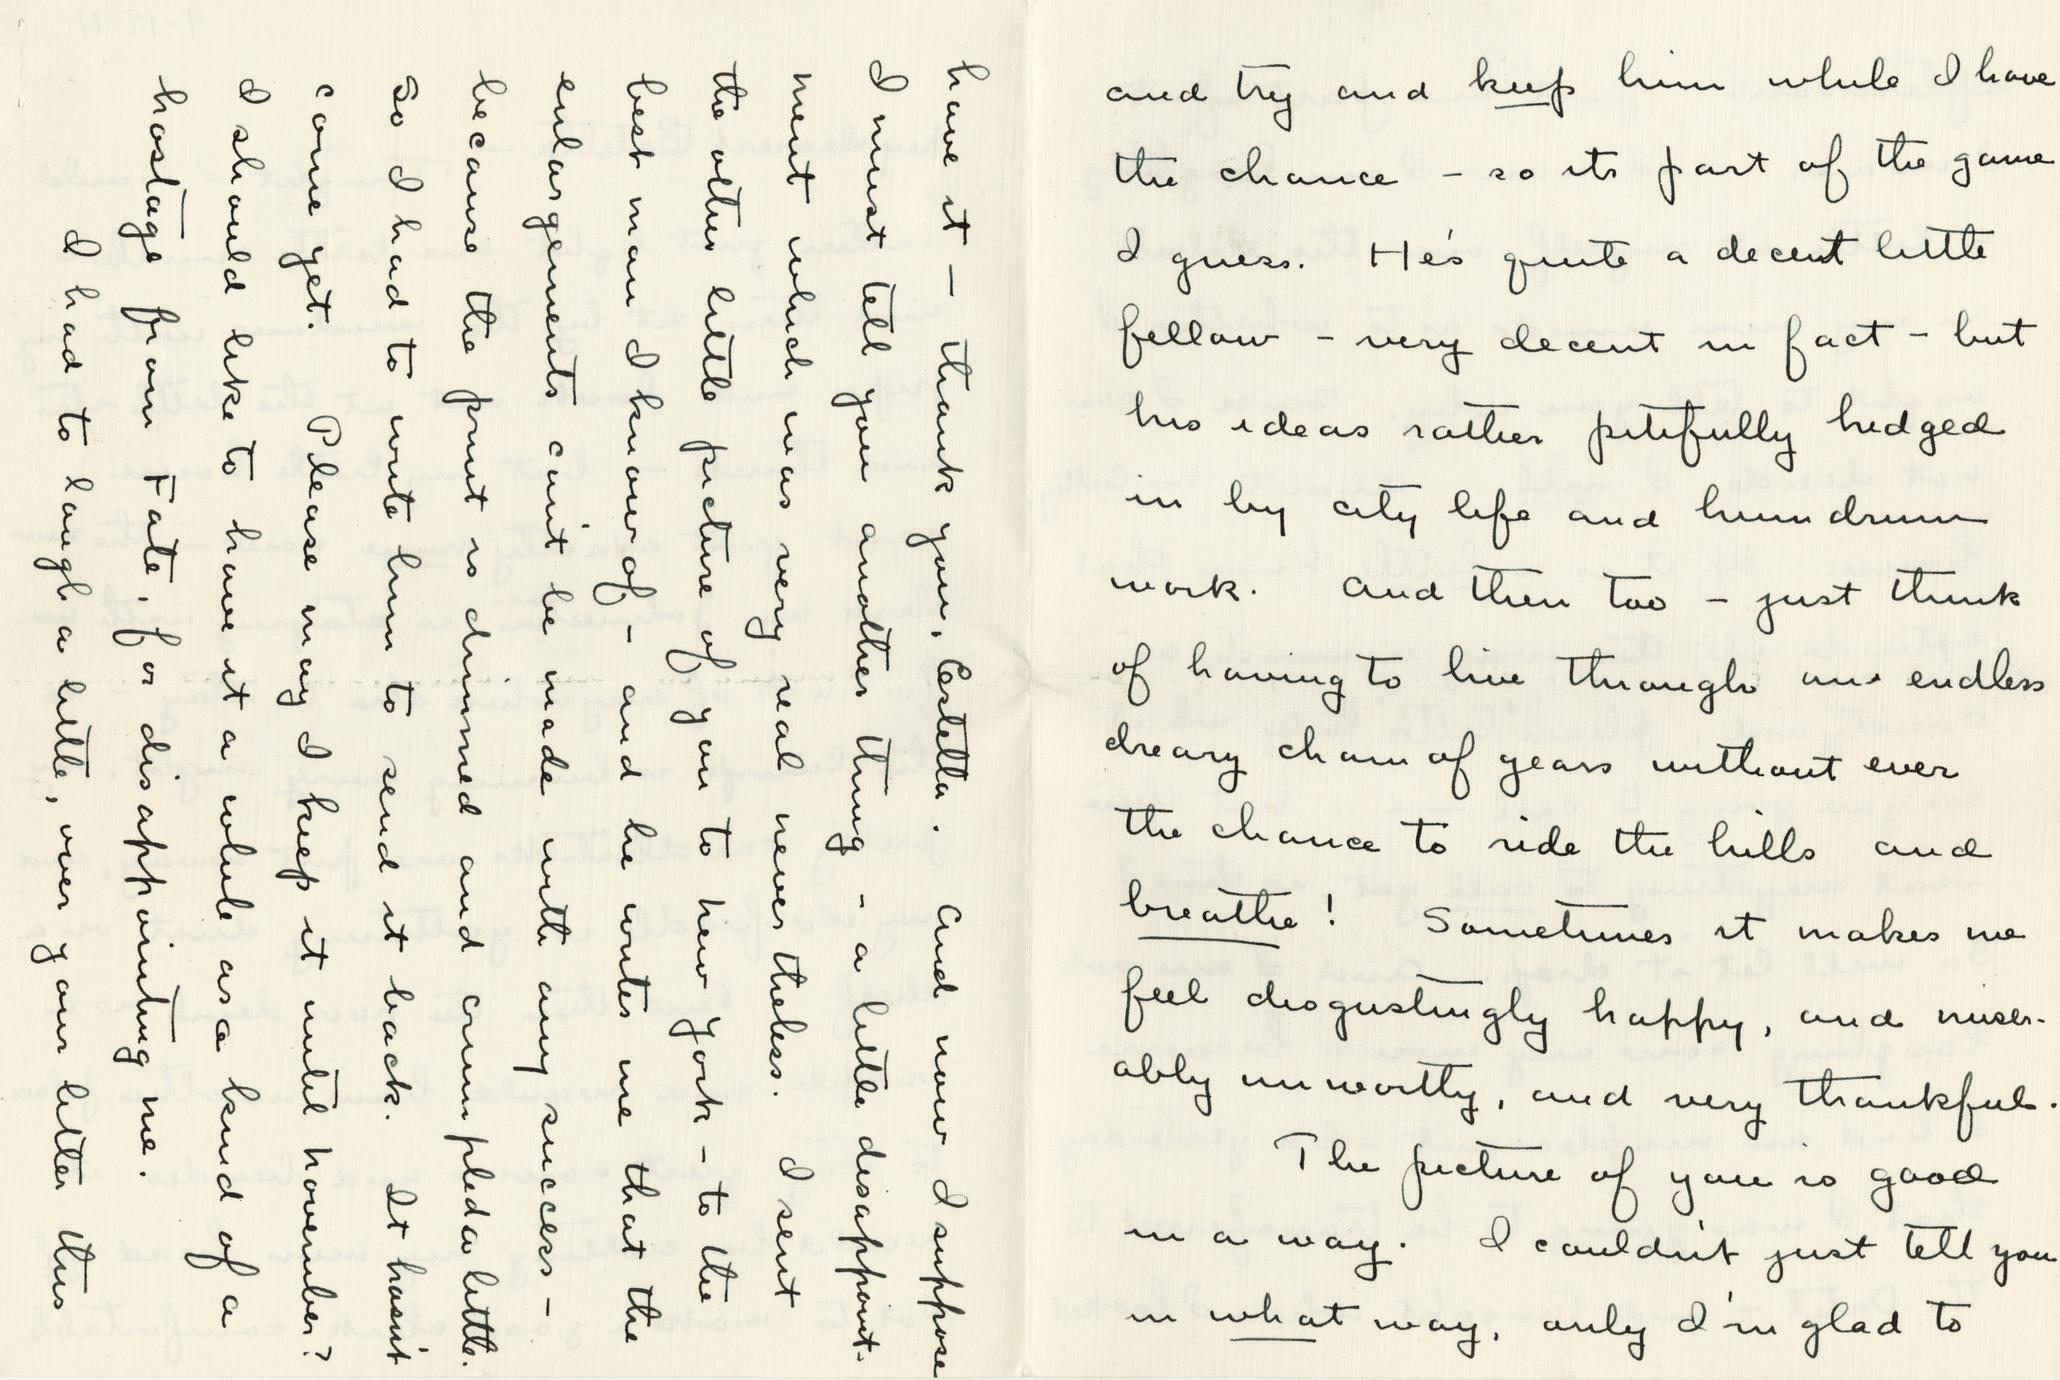 and try and keep him while I have
the chance – so its part of the game
I guess. He's quite a decent little
fellow – very decent in fact – but
his ideas rather pitifully hedged
in by city life and humdrum
work. And then too – just think
of having to live through an endless
dreary chain of years without ever
the chance to ride the hills and
breathe! Sometimes it makes me
feel disgustingly happy, and miser-
ably unworthy, and very thankful.
The picture of you is good
in a way. I couldn't just tell you
in what way, only I'm glad to
have it – thank you, Estella. And now I suppose
I must tell you another thing – a little disappoint-
ment which was very real never theless. I sent
the other little picture of you to New York – to the
best man I know of – and he writes me that the
enlargements can't be made with any success –
because the print is dimmed and crumpled a little.
So I had to write him to send it back. It hasn't
come yet. Please may I keep it until November?
I should like to have it a while as a kind of a
hostage from Fate, for disappointing me.
I had to laugh a little, over your letter this